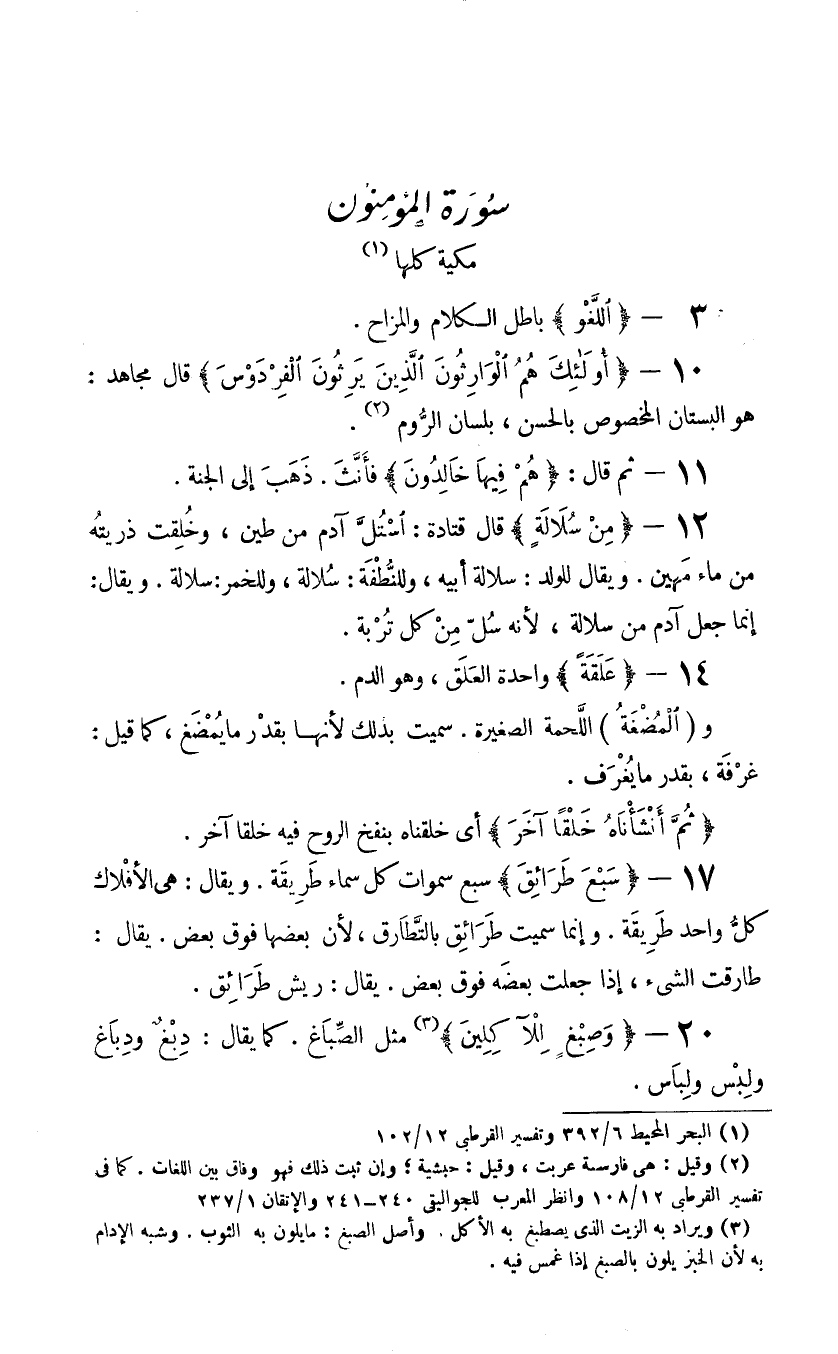 سُورَة المؤمِنُون
مكية كلها (١)
٣ – ﴿ ٱللَّغْوِ ﴾ باطل الـكلام والمزاح .
١٠ – ﴿ أُولَٰئِكَ هُمُ ٱلْوَارِثُونَ ٱلَّذِينَ يَرِثُونَ ٱلْفِرْدَوْسَ ﴾ قال مجاهد :
هو البستان المخصوص بالحسن ، بلسان الرُّوم (٢) .
١١ – ثم قال : ﴿ هُمْ فِيهَا خَالِدُونَ ﴾ فأَنَّثَ . ذَهَبَ إلى الجنة .
١٢ – ﴿ مِنْ سُلَالَةٍ ﴾ قال قتادة : ٱسْتُلَّ آدم من طين ، وخُلِقت ذريتهُ
من ماء مَهين . ويقال للولد : سلالة أبيه ، وللنُّطْفَة : سُلالة ، وللخمر:سلالة . ويقال:
إنما جعل آدم من سلالة ، لأنه سُلّ مِنْ كل تُرْبة .
١٤ – ﴿ عَلَقَةً ﴾ واحدة العَلَق ، وهو الدم .
و ( ٱلْمُضْغَةُ ) اللَّحمة الصغيرة . سميت بذلك لأنهـا بقدْر مايُمْضَغ ، كما قيل :
غرْفَة ، بقدر مايُغْرَف .
﴿ ثُمَّ أَنْشَأْنَاهُ خَلْقًا آخَرَ ﴾ أى خلقناه بنفخ الروح فيه خلقا آخر .
١٧ – ﴿ سَبْعَ طَرَائِقَ ﴾ سبع سموات كل سماء طَرِيقَة . ويقال : هى الأَفْلاك
كلُّ واحد طَرِيقَة . وإنما سميت طَرَائِق بالتَّطَارق ، لأن بعضها فوق بعض . يقال :
طارقت الشىء ، إذا جعلت بعضَه فوق بعض . يقال : ريش طَرَائِق .
٢٠ – ﴿ وَصِبْغٍ لِلْآكِلِينَ ﴾(٣) مثل الصِّبَاغ . كما يقال : دِبْغٌ ودِبَاغ
ولِبْس ولِبَاس .
(١) البحر المحيط ٣٩٢/٦ وتفسير القرطبى ١٠٢/١٢
(٢) وقيل : هى فارسىة عربت ، وقيل : حبشية ؛ وإن ثبت ذلك فهو وفاق بين اللغات . كما فى
تفسير القرطبى ١٠٨/١٢ وانظر المعرب للجواليقى ٢٤٠–٢٤١ والإتقان ٢٣٧/١
(٣) ويراد به الزيت الذى يصطبغ به الأكل . وأصل الصبغ : مايلون به الثوب . وشبه الإدام
به لأن الخبز يلون بالصبغ إذا غمس فيه .